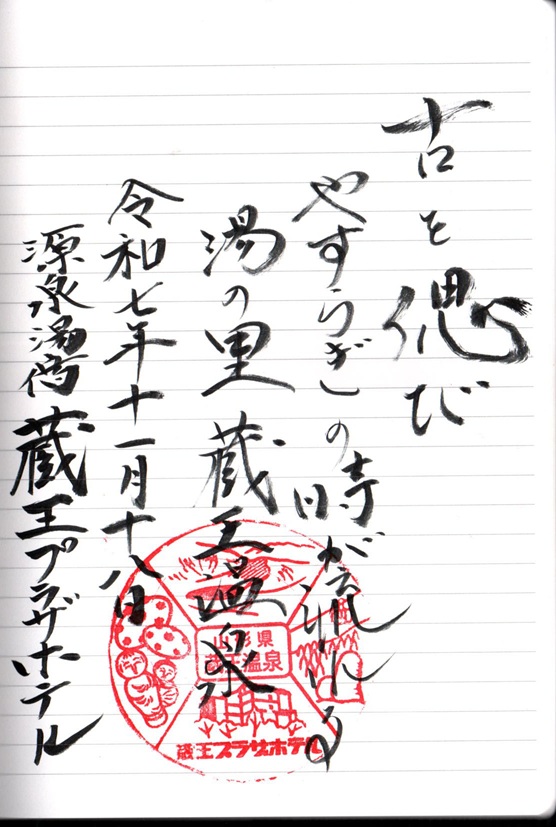 古を偲び
やすらぎの時が流れる
湯の里 蔵王温泉
令和七年十一月十八日
源泉湯宿 蔵王プラザホテル
山形県
蔵王温泉
蔵王プラザホテル